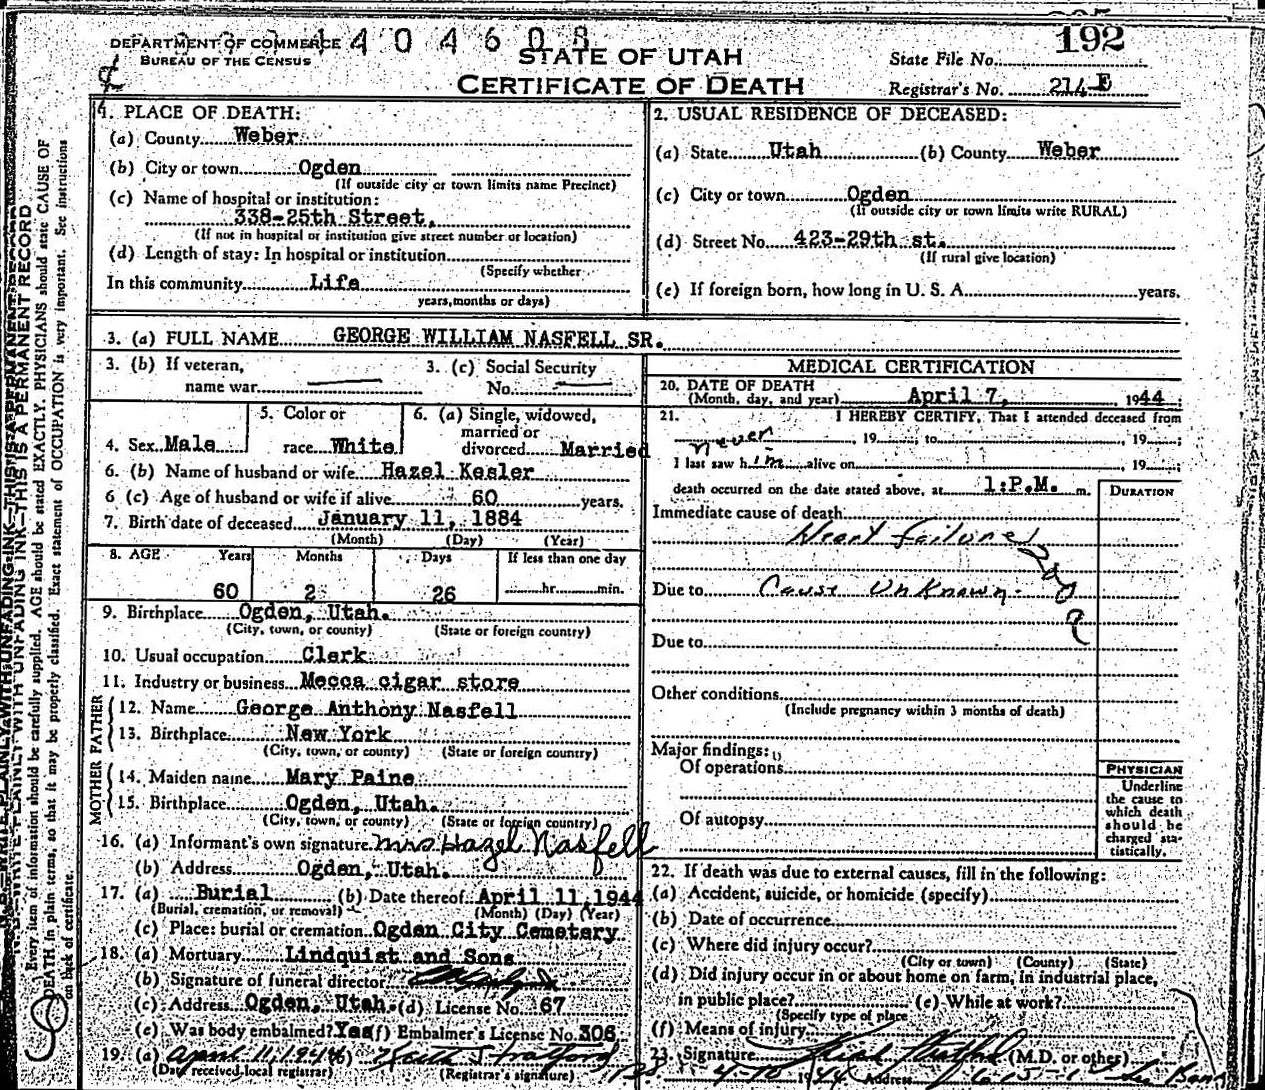 DEPARTMENT OF COMMERCE
BUREAU OF THE CENSUS
404608
STATE OF UTAH
CERTIFICATE OF DEATH
192
State File No.
Registrar's No. 214 E
1. PLACE OF DEATH:
(a) County Weber
(b) City or town Ogden
(If outside city or town limits name Precinct)
(c) Name of hospital or institution:
338-25th Street,
(If not in hospital or institution give street number or location)
(d) Length of stay: In hospital or institution
(Specify whether
In this community Life
years, months or days)
2. USUAL RESIDENCE OF DECEASED:
(a) State Utah (b) County Weber
(c) City or town Ogden
(If outside city or town limits write RURAL)
(d) Street No. 423-29th st.
(If rural give location)
(e) If foreign born, how long in U. S. A. years.
3. (a) FULL NAME GEORGE WILLIAM NASFELL SR.
3. (b) If veteran,
name war
3. (c) Social Security
No.
4. Sex Male
5. Color or
race White
6. (a) Single, widowed,
married or
divorced Married
6. (b) Name of husband or wife Hazel Kesler
6 (c) Age of husband or wife if alive 60 years.
7. Birth date of deceased January 11, 1884
(Month) (Day) (Year)
8. AGE Years Months Days If less than one day
60 2 26 hr. min.
9. Birthplace Ogden, Utah.
(City, town, or county) (State or foreign country)
10. Usual occupation Clerk
11. Industry or business Mecca cigar store
FATHER
12. Name George Anthony Nasfell
13. Birthplace New York
(City, town, or county) (State or foreign country)
MOTHER
14. Maiden name Mary Paine
15. Birthplace Ogden, Utah.
(City, town, or county) (State or foreign country)
16. (a) Informant's own signature Mrs Hazel Nasfell
(b) Address Ogden, Utah.
17. (a) Burial (b) Date thereof April 11, 1944
(Burial, cremation, or removal) (Month) (Day) (Year)
(c) Place: burial or cremation Ogden City Cemetery
18. (a) Mortuary Lindquist and Sons
(b) Signature of funeral director
(c) Address Ogden, Utah. (d) License No. 67
(e) Was body embalmed? Yes (f) Embalmer's License No. 306
19. (a) April 11, 1944 (b)
(Date received local registrar) (Registrar's signature)
MEDICAL CERTIFICATION
20. DATE OF DEATH
(Month, day, and year) April 7, 1944
21. I HEREBY CERTIFY, That I attended deceased from
never , 19 ; to , 19 ;
I last saw him alive on , 19 ;
death occurred on the date stated above, at 1:P.M. m.
DURATION
Immediate cause of death
Heart failure
200
Due to Cause Unknown
Due to
Other conditions
(Include pregnancy within 3 months of death)
Major findings:
Of operations
Of autopsy
PHYSICIAN
Underline
the cause to
which death
should be
charged sta-
tistically.
22. If death was due to external causes, fill in the following:
(a) Accident, suicide, or homicide (specify)
(b) Date of occurrence
(c) Where did injury occur?
(City or town) (County) (State)
(d) Did injury occur in or about home on farm, in industrial place,
in public place? (e) While at work?
(Specify type of place
(f) Means of injury
23. Signature (M.D. or other)
4-10 1944 Address
Every item of information should be carefully supplied. AGE should be stated EXACTLY. PHYSICIANS should state CAUSE OF
DEATH in plain terms, so that it may be properly classified. Exact statement of OCCUPATION is very important. See instructions
on back of certificate.